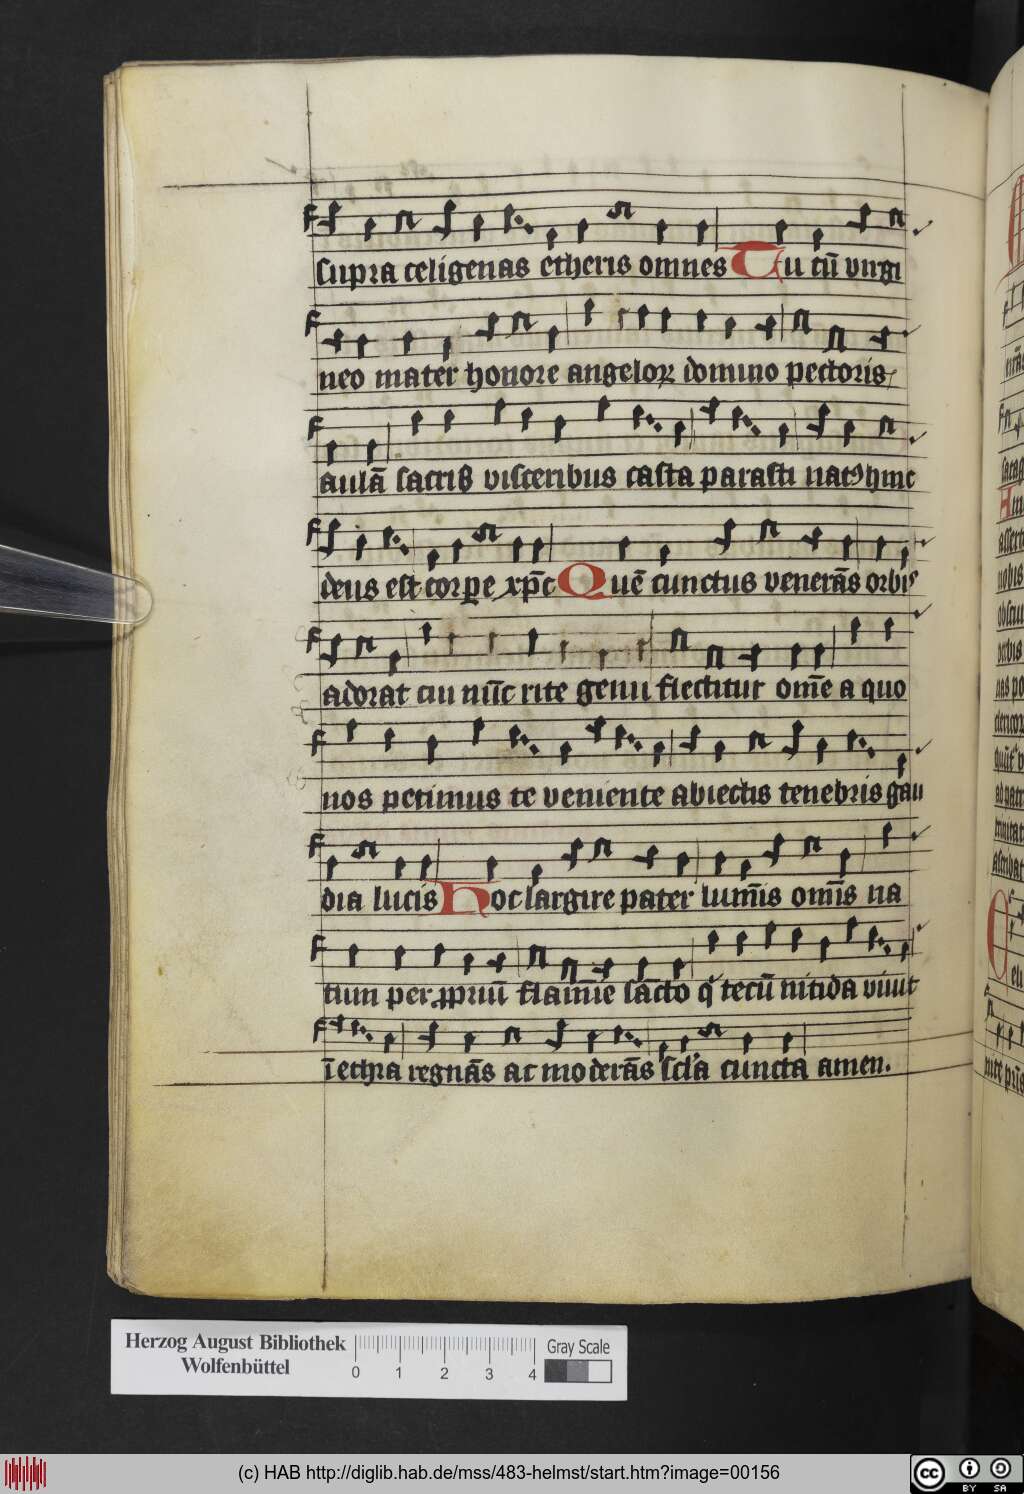 supra celigenas etheris omnes Tu cū virgi
neo mater honore angeloꝝ domino pectoris
aulā sacris visceribus casta parasti natꝰ hinc
deus est corꝑe xp̄c Quē cunctus venerās orbis
adorat cui nūc rite genu flectitur om̄e a quo
nos petimus te veniente abiectis tenebris gau
dia lucis Hoc largire pater lum̄is om̄is na
tum per ꝓpriū flamīe sācto q̇ tecū nitida viuit
ī ethra regnās ac moderās sc̄la cuncta amen.
Herzog August Bibliothek
Wolfenbüttel
0 1 2 3 4
Gray Scale
(c) HAB http://diglib.hab.de/mss/483-helmst/start.htm?image=00156
cc BY SA